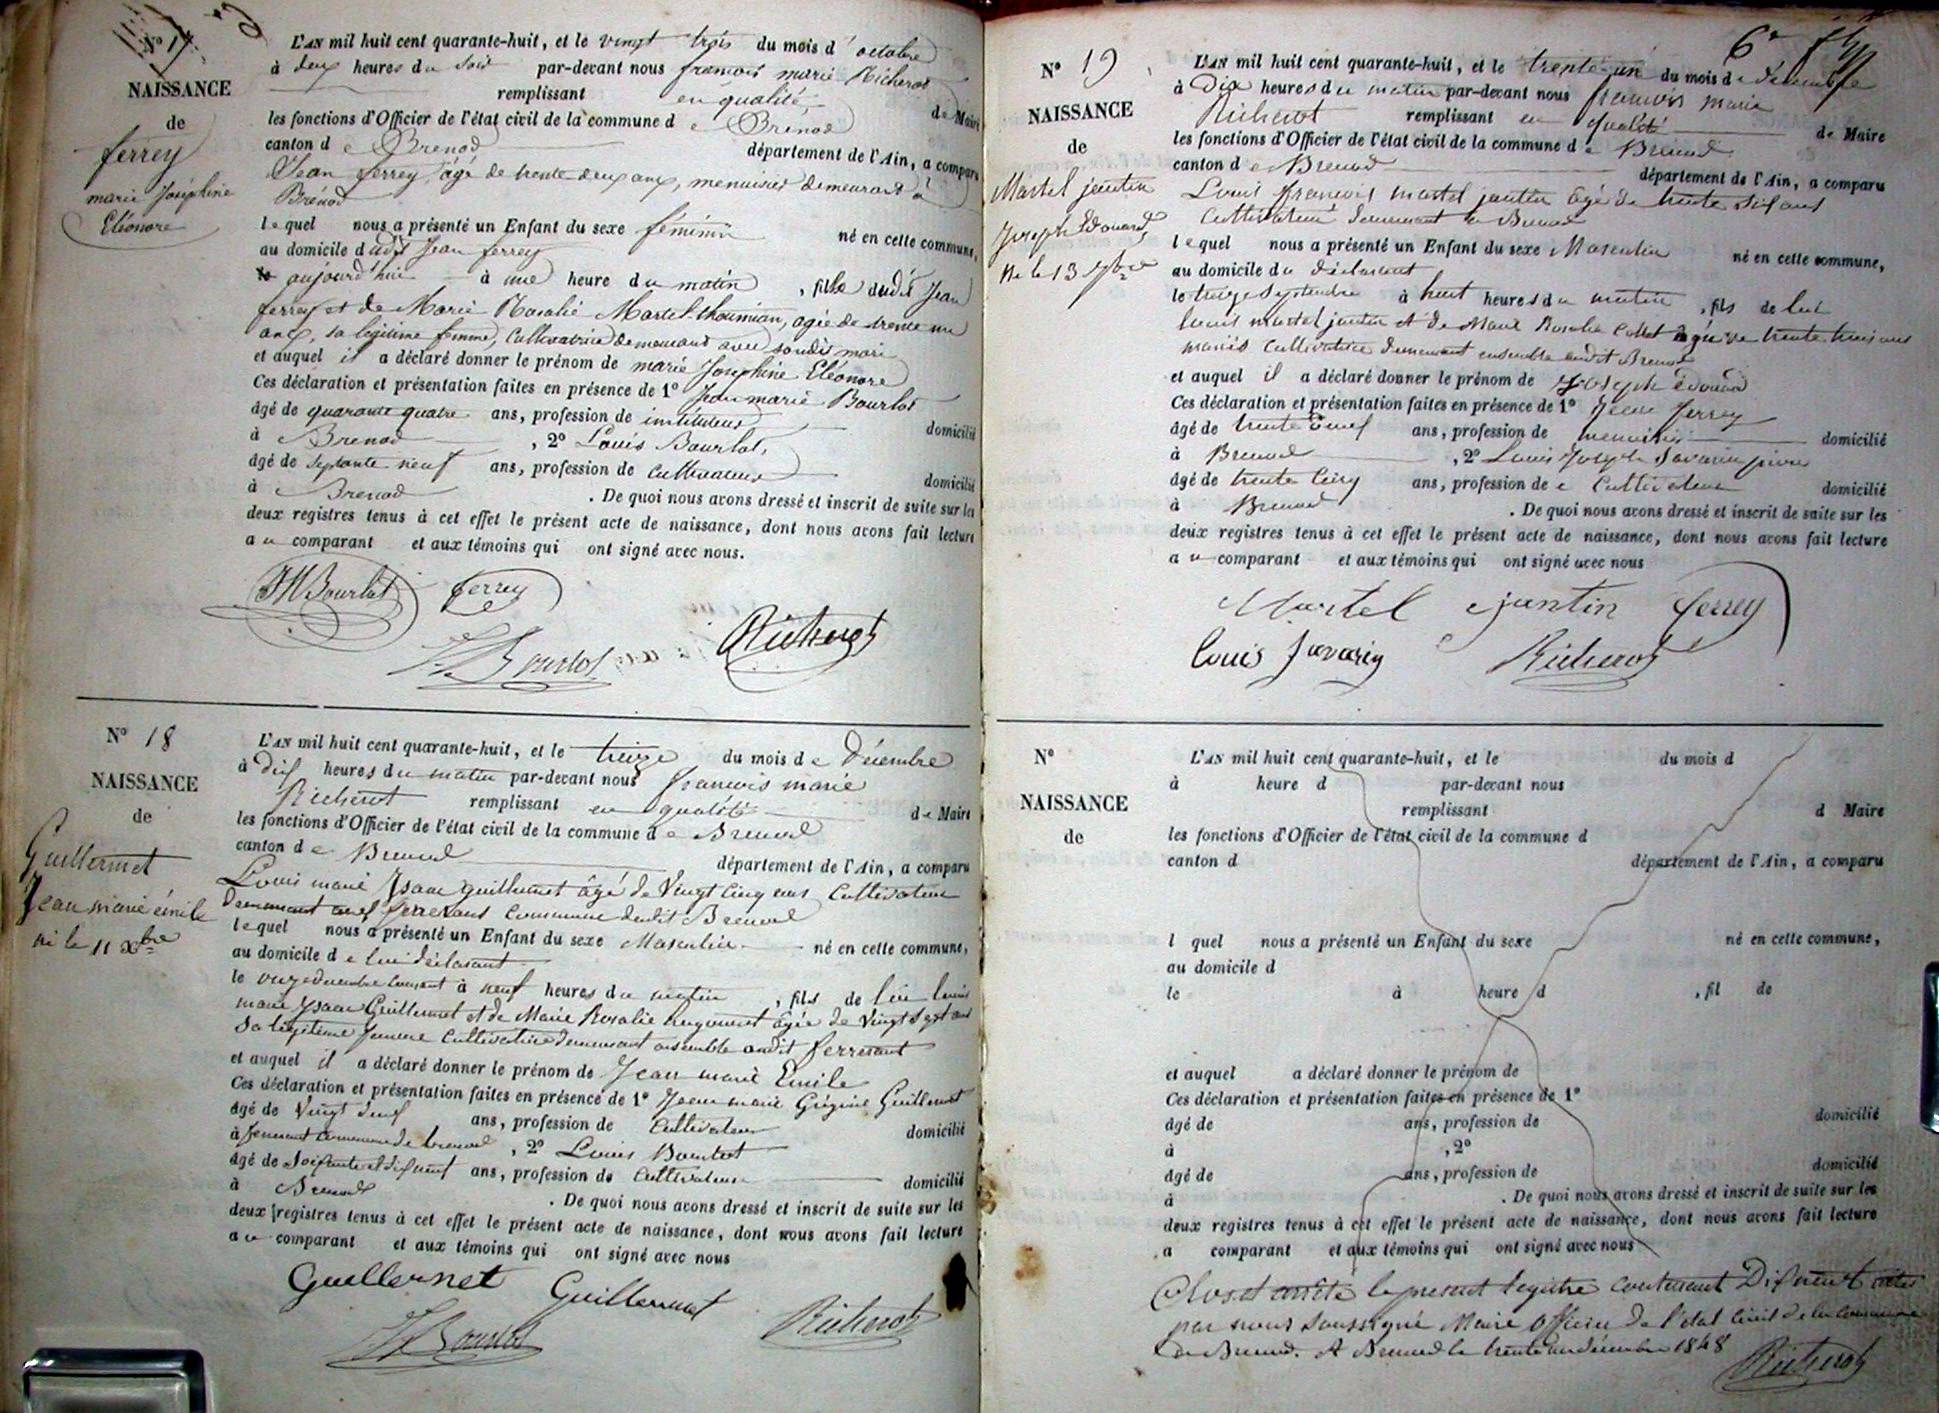 N° 17
NAISSANCE
de
ferrey
marie Joséphine
Eléonore
L'AN mil huit cent quarante-huit, et le vingt trois du mois d'octobre
à deux heures du soir par-devant nous francois marie Richerot
remplissant en qualité de Maire
les fonctions d'Officier de l'état civil de la commune de Brénod
canton de Brenod département de l'Ain, a comparu
Jean ferrey, âgé de trente deux ans, menuisier demeurant à
Brénod
lequel nous a présenté un Enfant du sexe féminin né en cette commune,
au domicile dudit Jean ferrey
aujourd'hui à une heure du matin, fille dudit Jean
ferrey et de Marie Rosalie Martel-thoumian, agée de trente un
ans, sa légitime femme, Cultivatrice demeurant avec sondit mari
et auquel il a déclaré donner le prénom de marie Joséphine Eléonore
Ces déclaration et présentation faites en présence de 1° Jean marie Bourlot
âgé de quarante quatre ans, profession de instituteur domicilié
à Brenod, 2° Louis Bourlot,
âgé de septante neuf ans, profession de cultivateur domicilié
à Brenod. De quoi nous avons dressé et inscrit de suite sur les
deux registres tenus à cet effet le présent acte de naissance, dont nous avons fait lecture
au comparant et aux témoins qui ont signé avec nous.
JM Bourlot ferrey
Bourlot Richerot
N° 18
NAISSANCE
de
Guillermet
Jean marie émile
né le 11 xbre
L'AN mil huit cent quarante-huit, et le treize du mois de Décembre
à dix heures du matin par-devant nous francois marie
Richerot remplissant en qualité de Maire
les fonctions d'Officier de l'état civil de la commune de Brenod
canton de Brenod département de l'Ain, a comparu
Louis marie Isaac guillermet âgé de Vingt Cinq ans Cultivateur
Demeurant commune dudit Brenod
lequel nous a présenté un Enfant du sexe Masculin né en cette commune,
au domicile de lui déclarant
le onze décembre courant à neuf heures du matin, fils de lui Louis
marie Ysaac Guillermet et de Marie Rosalie agée de Vingt sept ans
Sa légitime femme Cultivatrice demeurant ensemble audit
et auquel il a déclaré donner le prénom de Jean marie Emile
Ces déclaration et présentation faites en présence de 1° Jean marie Guillermet
âgé de Vingt neuf ans, profession de Cultivateur domicilié
à commune de brenod, 2° Louis Bourlot
âgé de Soixante et dix neuf ans, profession de Cultivateur domicilié
à Brenod. De quoi nous avons dressé et inscrit de suite sur les
deux registres tenus à cet effet le présent acte de naissance, dont nous avons fait lecture
au comparant et aux témoins qui ont signé avec nous
Guillermet Guillermet
Bourlot Richerot
6e
N° 19
NAISSANCE
de
Martel jantin
Joseph Edouard
né le 13 7bre
L'AN mil huit cent quarante-huit, et le trente-un du mois de décembre
à Dix heures du matin par-devant nous francois marie
Richerot remplissant en qualité de Maire
les fonctions d'Officier de l'état civil de la commune de Brenod
canton de Brenod département de l'Ain, a comparu
Louis francois martel jantin âgé de trente six ans
Cultivateur demeurant à Brenod
lequel nous a présenté un Enfant du sexe Masculin né en cette commune,
au domicile du déclarant
le treize Septembre à huit heures du matin, fils de lui
Louis martel jantin et de Marie Rosalie Collet agée de trente trois ans
mariés Cultivatrice demeurant ensemble audit Brenod
et auquel il a déclaré donner le prénom de Joseph édouard
Ces déclaration et présentation faites en présence de 1° Jean ferrey
âgé de trente deux ans, profession de menuisier domicilié
à Brenod, 2° Louis Joseph Savarin
âgé de trente Cinq ans, profession de Cultivateur domicilié
à Brenod. De quoi nous avons dressé et inscrit de suite sur les
deux registres tenus à cet effet le présent acte de naissance, dont nous avons fait lecture
au comparant et aux témoins qui ont signé avec nous
Martel jantin ferrey
Louis Savarin Richerot
N°
NAISSANCE
de
L'AN mil huit cent quarante-huit, et le du mois d
à heure d par-devant nous
remplissant d Maire
les fonctions d'Officier de l'état civil de la commune d
canton d département de l'Ain, a comparu
l quel nous a présenté un Enfant du sexe né en cette commune,
au domicile d
le à heure d , fil de
et auquel a déclaré donner le prénom de
Ces déclaration et présentation faites en présence de 1°
âgé de ans, profession de domicilié
à , 2°
âgé de ans, profession de domicilié
à . De quoi nous avons dressé et inscrit de suite sur les
deux registres tenus à cet effet le présent acte de naissance, dont nous avons fait lecture
a comparant et aux témoins qui ont signé avec nous
Clos et arrêté le présent registre contenant Dix neuf actes
par nous soussigné Maire Officier de l'état Civil de la commune
de Brenod. A Brenod le trente un décembre 1848
Richerot